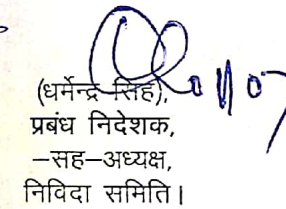 (धर्मेन्द्र सिंह),
प्रबंध निदेशक,
–सह–अध्यक्ष,
निविदा समिति।